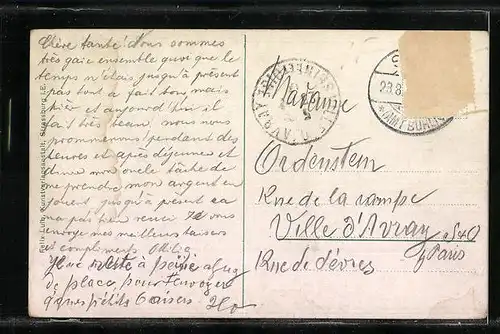 Chère tante! Nous sommes
très gaie ensemble quoi que le
temps n'etais jusqu'à présent
pas tout à fait bon mais
hier et aujourd'hui il
fait très beau, nous nous
promenons pendant des
heures et après déjeuner et
diner mon oncle tâche de
me prendre mon argent en
jouent jusqu'à présent ça
n'a pas bien reussi
envoye mes meilleurs baisers
et compliments
reste à peine
de place, pour t'envoyer
petits baisers.
Felix Luib, Kunstverlagsanstalt, Strassburg i.E.
Madame
Ordenstein
Rue de la rampe
Ville d'Avray S&O
Rue de Sèvres
Paris